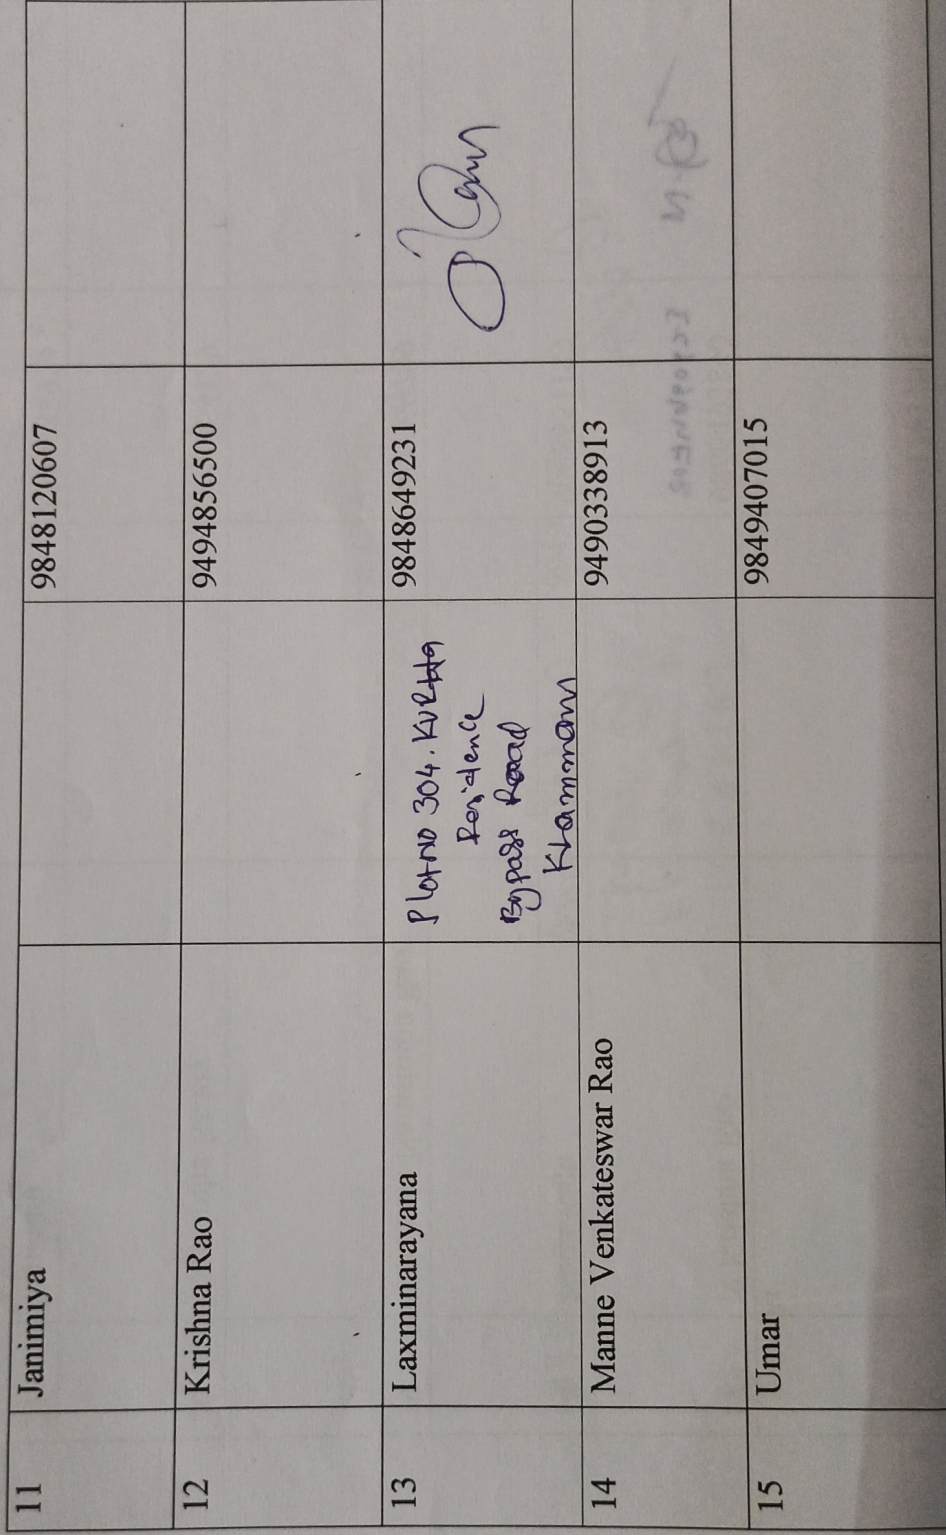 11 Janimiya 9848120607
12 Krishna Rao 9494856500
13 Laxminarayana 9848649231
Plot No 304, 
Residence
Bypass Road
Khammam
14 Manne Venkateswar Rao 9490338913
15 Umar 9849407015